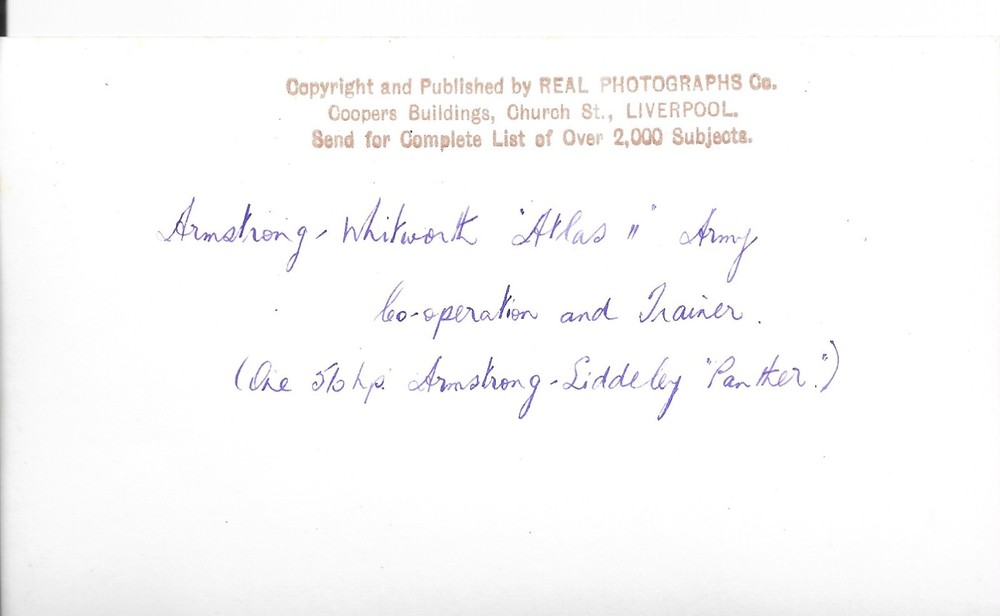 Copyright and Published by REAL PHOTOGRAPHS Co.
Coopers Buildings, Church St., LIVERPOOL.
Send for Complete List of Over 2,000 Subjects.
Armstrong-Whitworth "Atlas II" Army
Co-operation and Trainer.
(One h.p. Armstrong-Siddeley "Panther".)